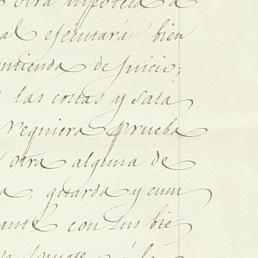 otra hipoteca a
al ejecutarán bien
ntienda de Juicio;
las costas y Sala
requiera prueba
otra alguna de
a, guarda y cum
ante con sus bie